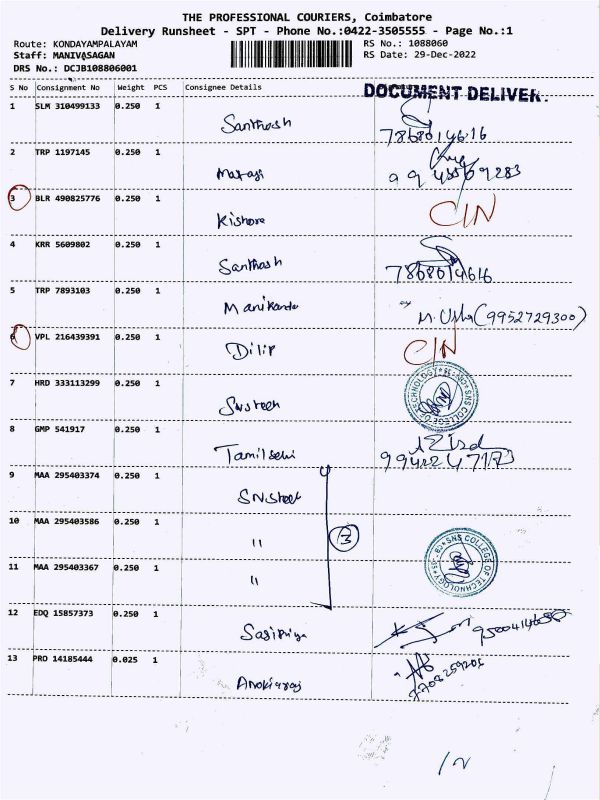 THE PROFESSIONAL COURIERS, Coimbatore
Delivery Runsheet - SPT - Phone No.:0422-3505555 - Page No.:1
Route: KONDAYAMPALAYAM
RS No.: 1088060
Staff: MANIVASAGAN
RS Date: 29-Dec-2022
DRS No.: DCJB108806001
S No Consignment No Weight PCS Consignee Details
DOCUMENT DELIVER.
1 SLM 310499133 0.250 1
Santhosh 7868014616
2 TRP 1197145 0.250 1
3 BLR 490825776 0.250 1
Kishore C/N
4 KRR 5609802 0.250 1
Santhosh 7868014616
5 TRP 7893103 0.250 1
Manikanda M. Usha (9952729300)
6 VPL 216439391 0.250 1
Dilip C/N
7 HRD 333113299 0.250 1
SNS COLLEGE OF TECHNOLOGY
8 GMP 541917 0.250 1
Tamilselvi
9 MAA 295403374 0.250 1
10 MAA 295403586 0.250 1
" 3
11 MAA 295403367 0.250 1
" SNS COLLEGE OF TECHNOLOGY
12 EDQ 15857373 0.250 1
13 PRD 14185444 0.025 1